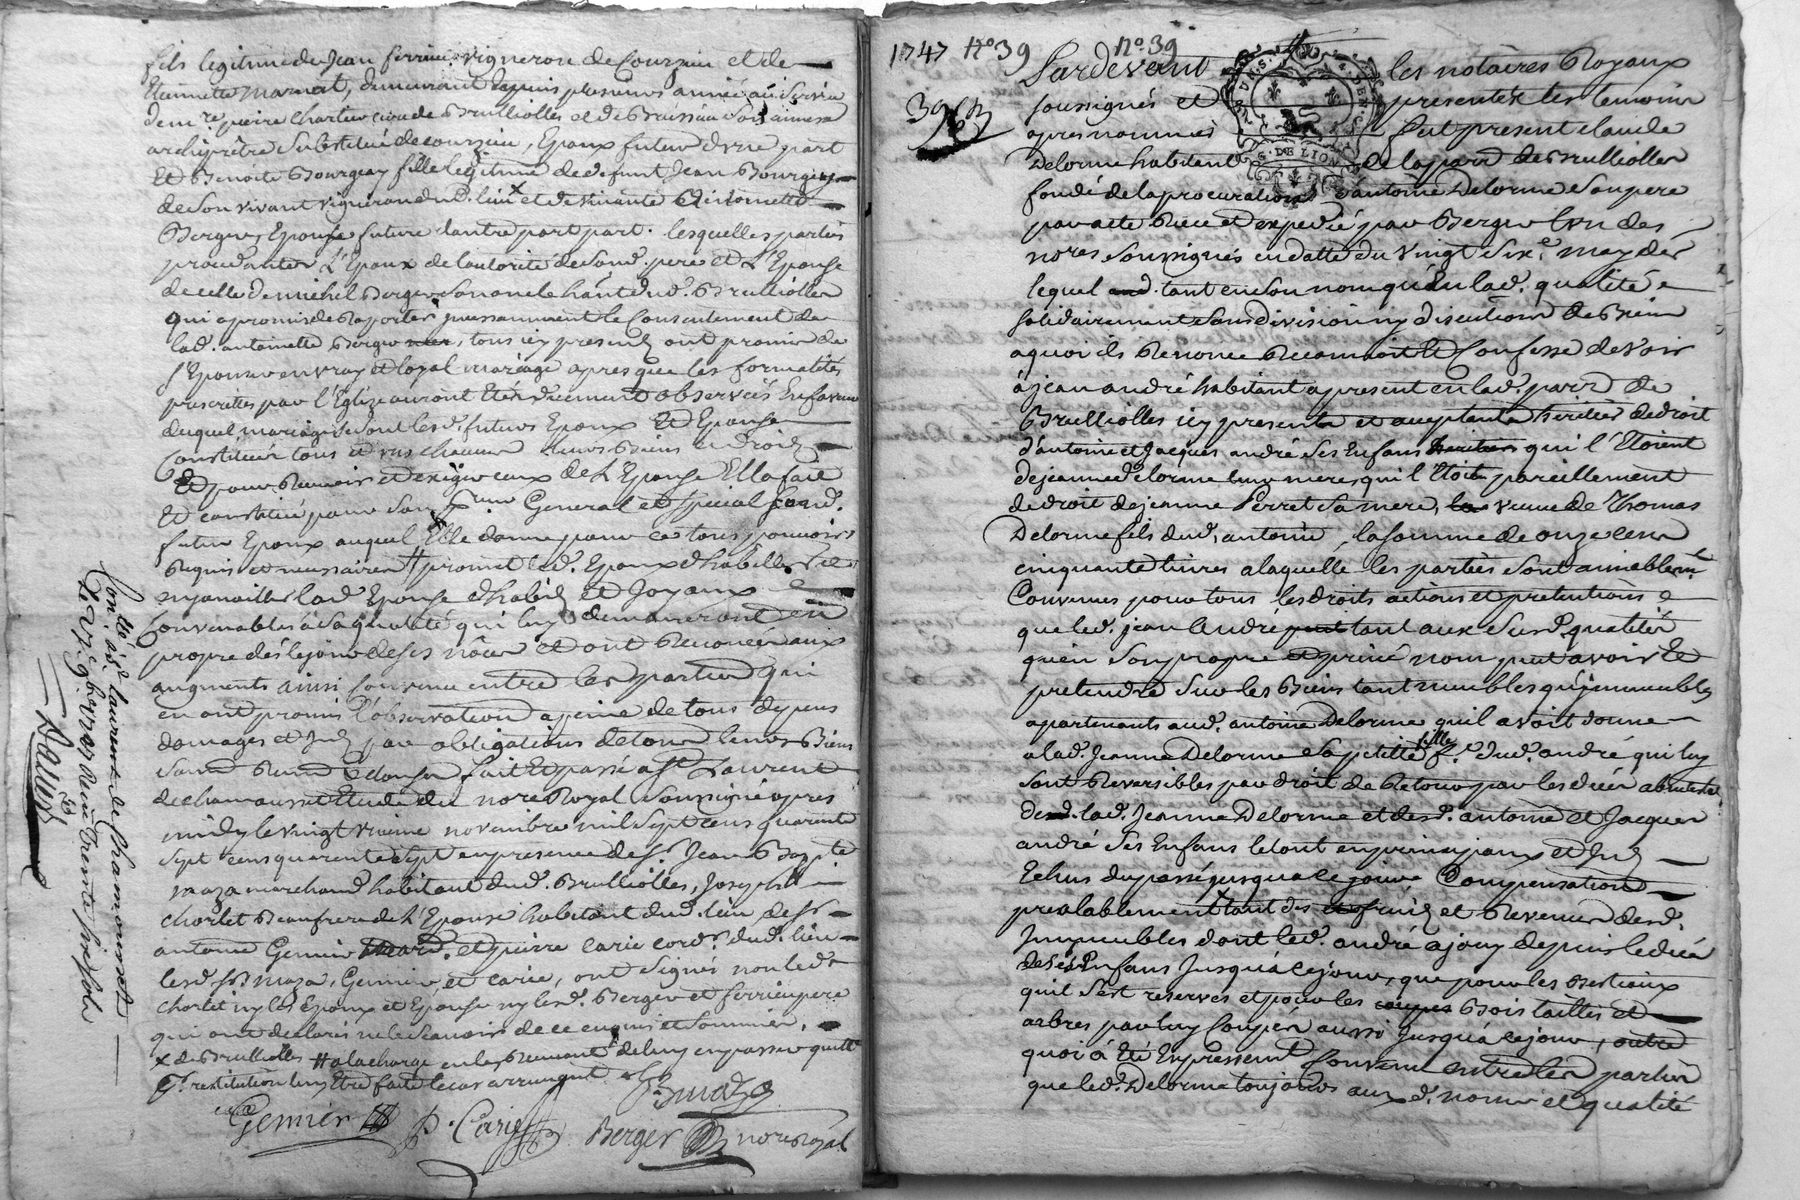 fils legitime de Jean ferrieu vigneron de Courzieu et de
Etiennette marnat, demeurant depuis plusieurs année au service
de mre pierre charleu curé de Brulliolles et de
archiprêtre substitué de courzieu, Epoux futur d'vne part
Et Benoite Bourgeay fille legitime de defunt Jean Bourgeay
de son vivant vigneron dud. lieu x et de vivante Antoinette
Berger, Epouse future d'autre part part. lesquelles parties
procedantes L'Epoux de l'autorité de sond. pere et L'Epouse
de celle de michel Berger son oncle habitant dud. Brulliolles
qui a promis de Raporter incessamment le Consentement de
lad. antoinette Berger, tous icy presens ont promis de
s'Epouser en vray et loyal mariage apres que les formalités
prescrittes par l'Eglise auront Eté deüement observées En faveur
duquel mariage se sont lesd. futurs Epoux Et Epouse
Constitués tous et vns chacuns leurs Biens et droits
Et pour Recevoir et exiger ceux de L'Epouse Elle a fait
Et constitué pour son General et special sond.
futur Epoux auquel Elle donne pour ce tous pouvoirs
Requis et necessaires # promet led. Epoux d'habiller
lad. Epouse d'habits et Joyaux
Convenables à sa qualité qui luy demeureront en
propre dès le jour de ses nôces et ont Renoncé aux
augments ainsi Convenu entre les parties qui
en ont promis l'observation a peine de tous depens
domages et Jnts par obligations de tous leurs Biens
fait Et passé a St Laurent
de chamousset Etude du nore Royal soussigné apres
midy le vingt vnieme novembre mil sept cens quarente
sept cens quarente sept en presence de sr. Jean Bapte
maza marchand habitant dud. Brulliolles, Joseph
chorlet Beaufrere de L'Epouse habitant dud. lieu de sr
antoine Gennier et pierre Carie cordr. dud. lieu
lesd. srs maza, Gennier, et Carie, ont signé non led.
chorlet ny les Epoux et Epouse ny lesd. Berger et ferrieu pere
qui ont declaré ne le sçavoir de ce enquis et sommés.
x de Brulliolles # a la charge en les Recevant de luy en passer quitte
Et restitution luy Etre faite le cas arrivant
Gennier P. Carie Berger nore Royal
Jbmaza
Contllé. à St. laurent de Chamousset
Le 1747 Reçu trente six sols
1747 No 39 No. 39
39
Pardevant les notaires Royaux
soussignés et presents les temoins
apres nommés fut present claude
Delorme habitant de la parr. de Brulliolles
fondé de la procuration d'antoine Delorme son pere
par acte Reçu et expedié par Berger l'vn des
nores soussignés en datte du vingt six.e may der
lequel tant en son nom qu'en lad. qualité
solidairement sans division ny discution de Biens
a quoi ils Renonce Reconnoit Et Confesse devoir
à jean andré habitant a present en lad. parr. de
Brulliolles icy present et acceptant heritier de droit
d'antoine et Jacques andré ses Enfans qui l'Etoient
de jeanne delorme leur mere, qui l'Etoit pareillement
de droit de jeanne Perret sa mere, veuve de Thomas
Delorme fils dud. antoine, la somme de onze cens
cinquante livres a laquelle les parties sont aimablemt
Convenues pour tous les droits actions et pretentions
que led. jean André tant aux susd. qualités
qu'en son propre et privé nom peut avoir Et
pretendre sur les Biens tant meubles qu'immeubles
apartenants aud. antoine Delorme qu'il avoit donne
a lad. Jeanne Delorme sa petite fille fe. dud. andré qui luy
sont Reversibles par droit de Retour par les decès abintestat
de lad. Jeanne Delorme et desd. antoine et Jacques
andré ses Enfans le tout en principaux et Jnts
Echus du passé jusqu'a ce jour Compensation
prealablement x tant des fruits et Revenus desd.
Jmmeubles dont led. andré a jouy depuis le decès
de ses Enfans Jusqu'à ce jour, que pour les Bestiaux
qu'il s'est reservés et pour les Bois taillis et
arbres par luy Coupés aussy Jusqu'à ce jour, outre
quoi à Eté Expressemt Convenu entre les parties
que led. Delorme toujours aux d. noms et qualité